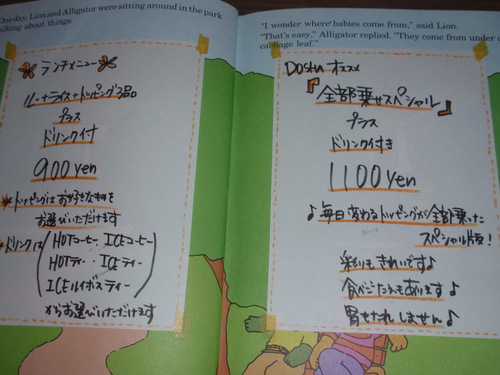 One day, Lion and Alligator were sitting around in the park
talking about things.
ランチメニュー
ルー+ライス+トッピング3品
プラス
ドリンク付
900yen
*トッピングはお好きなものを
お選びいただけます
*ドリンクは(HOTコーヒー.ICEコーヒー
HOTティー・ICEティー
ICEルイボスティー)
からお選びいただけます
"I wonder where babies come from," said Lion.
"That's easy," Alligator replied. "They come from under a
cabbage leaf."
DOSHAオススメ
『全部乗せスペシャル』
プラス
ドリンク付き
1100yen
♪毎日変わるトッピングが全部乗った
スペシャル版!
彩りもきれいです♪
食べごたえもあります♪
胃もたれしません♪